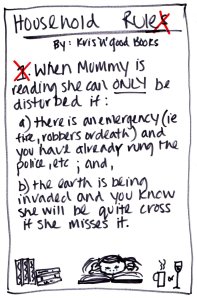 Household Rules
By: Kris'n'good Books
1. When Mommy is
reading she can ONLY be
disturbed if:
a) there is an emergency (ie
fire, robbers or death) and
you have already rung the
police, etc; and,
b) the earth is being
invaded and you know
she will be quite cross
if she misses it.
or